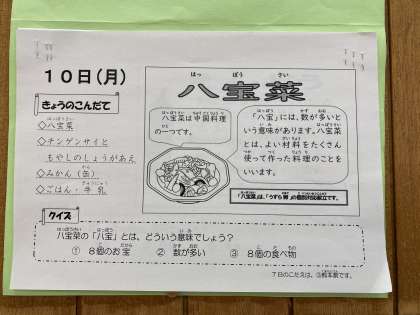 10日(月)
八宝菜
はっ ぽう さい
きょうのこんだて
◇八宝菜
◇チンゲンサイと
もやしのしょうがあえ
◇みかん(缶)
◇ごはん・牛乳
八宝菜は中国料理
の一つです。
「八宝」には、数が多いと
いう意味があります。八宝菜
とは、よい材料をたくさん
使って作った料理のことを
いいます。
「八宝菜」は、「うずら卵」の個別対応献立です。
クイズ
八宝菜の「八宝」とは、どういう意味でしょう?
① 8個のお宝 ② 数が多い ③ 8個の食べ物
7日のこたえは、③熊本県です。